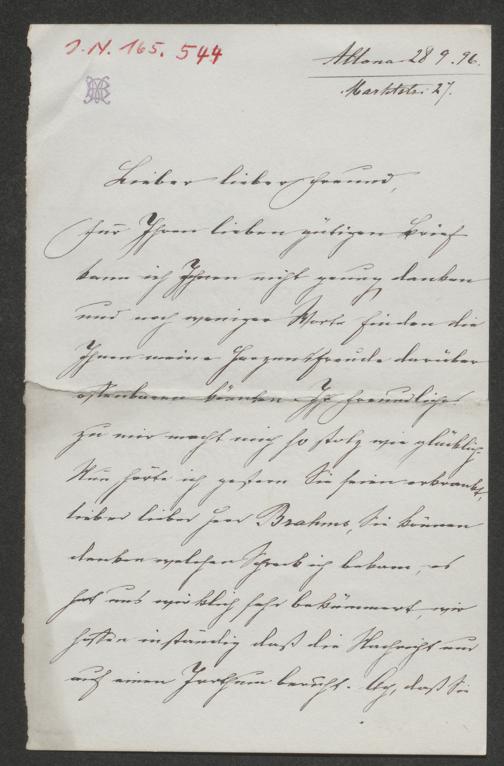 J.N. 165.544
Altona 28 9. 96.
Marktstr. 27.
Lieber lieber Freund,
Für Ihren lieben gütigen Brief
kann ich Ihnen nicht genug danken
und noch weniger Worte finden die
Ihnen meine Herzensfreude darüber
offenbaren könnten. Ihr freundlich
zu mir macht mich so stolz wie glücklich.
Nun hörte ich gestern Sie seien erkrankt,
lieber lieber Herr Brahms, Sie können
denken welchen Schreck ich bekam, es
hat uns wirklich sehr bekümmert, wir
hoffen inständig daß die Nachricht nur
auf einen Irrthum beruht. Ach, daß Sie